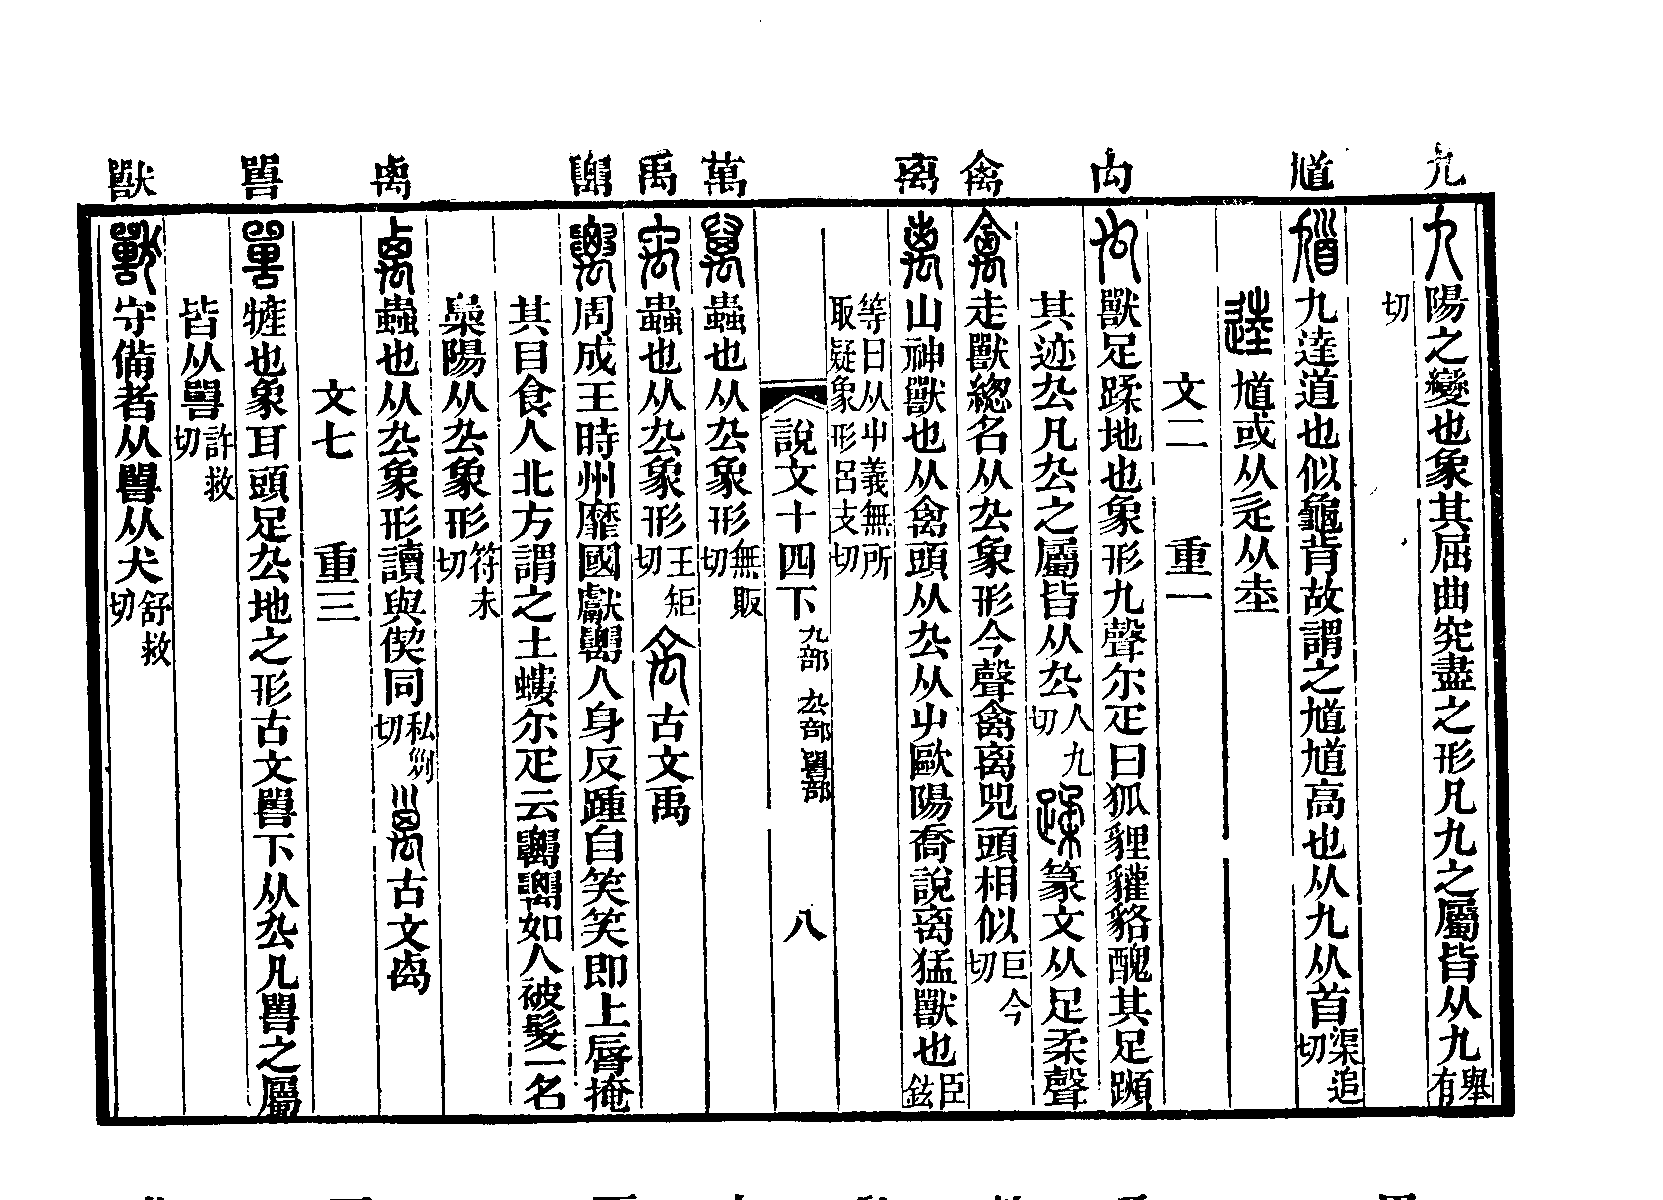 九 馗 禸 禽 离 萬 禹 𥝋 禼 嘼 獸
九 陽之變也象其屈曲究盡之形凡九之屬皆从九舉有
切
馗 九達道也似龜背故謂之馗馗高也从九从首渠追切
逵 馗或从辵从坴
文二 重一
禸 獸足蹂地也象形九聲尔疋曰狐貍貛貉醜其足𨇨
其迹厹凡厹之屬皆从厹人九切 蹂 篆文从足柔聲
禽 走獸緫名从厹象形今聲禽离兕頭相似巨今切
离 山神獸也从禽頭从厹从屮歐陽喬說离猛獸也臣鉉
等曰从屮義無所取疑象形呂支切
說文十四下 九部 厹部 嘼部 八
萬 蟲也从厹象形無販切
禹 蟲也从厹象形王矩切 古文禹
𥝋 周成王時州靡國獻𥝋人身反踵自笑笑即上脣掩
其目食人北方謂之土螻尔疋云𥝋𥝋如人被髮一名
梟陽从厹象形符未切
禼 蟲也从厹象形讀與偰同私列切 古文禼
文七 重三
嘼 㹌也象耳頭足厹地之形古文嘼下从厹凡嘼之屬
皆从嘼許救切
獸 守備者从嘼从犬舒救切